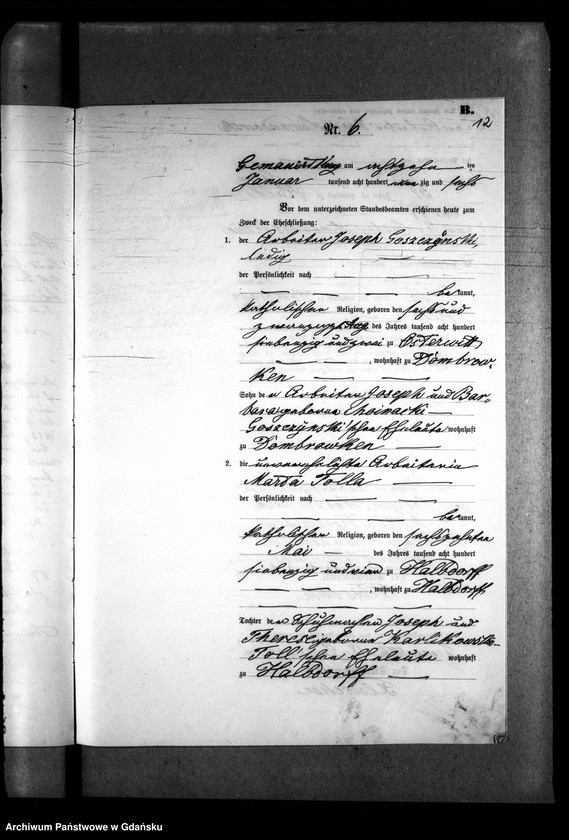 B.
12
Nr. 6.
am achtzehn ten
Januar tausend acht hundert zig und sechs
Vor dem unterzeichneten Standesbeamten erschienen heute zum
Zweck der Eheschließung:
1. der Arbeiter Joseph Goszczynski,
ledig
der Persönlichkeit nach
be kannt,
katholischer Religion, geboren den sechs und
zwanzigsten des Jahres tausend acht hundert
siebenzig und zwei zu Osterwitt
, wohnhaft zu Dombrow-
ken
Sohn der Arbeiter Joseph und Bar-
bara geborene Choinacki
Goszczynski'schen Eheleute wohnhaft
zu Dombrowken
2. die unverehelichte Arbeiterin
Marta Tolla
der Persönlichkeit nach
be kannt,
katholischer Religion, geboren den sechszehnten
Mai des Jahres tausend acht hundert
siebenzig und vier zu Halbdorff
, wohnhaft zu Halbdorff
Tochter der Schuhmacher Joseph und
Therese geborene Karlikowski
Toll'schen Eheleute wohnhaft
zu Halbdorff
Archiwum Państwowe w Gdańsku